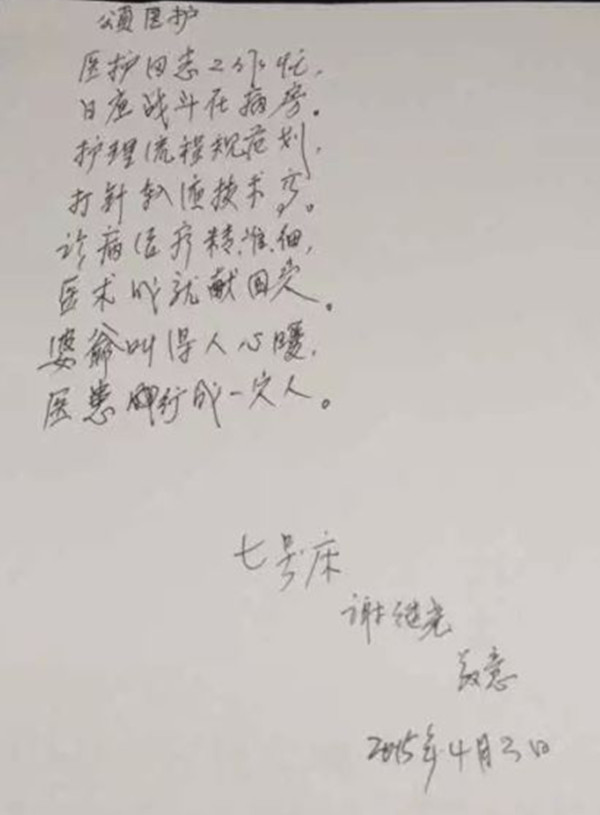 颂医护
医护同志工作忙，
日夜战斗在病房。
护理流程规范划，
打针输液技术高。
诊病医疗精准细，
医术成就献国家。
婆爺叫得人心暖，
医患 成一家人。
七号床
谢继光
致意
2015年4月3日